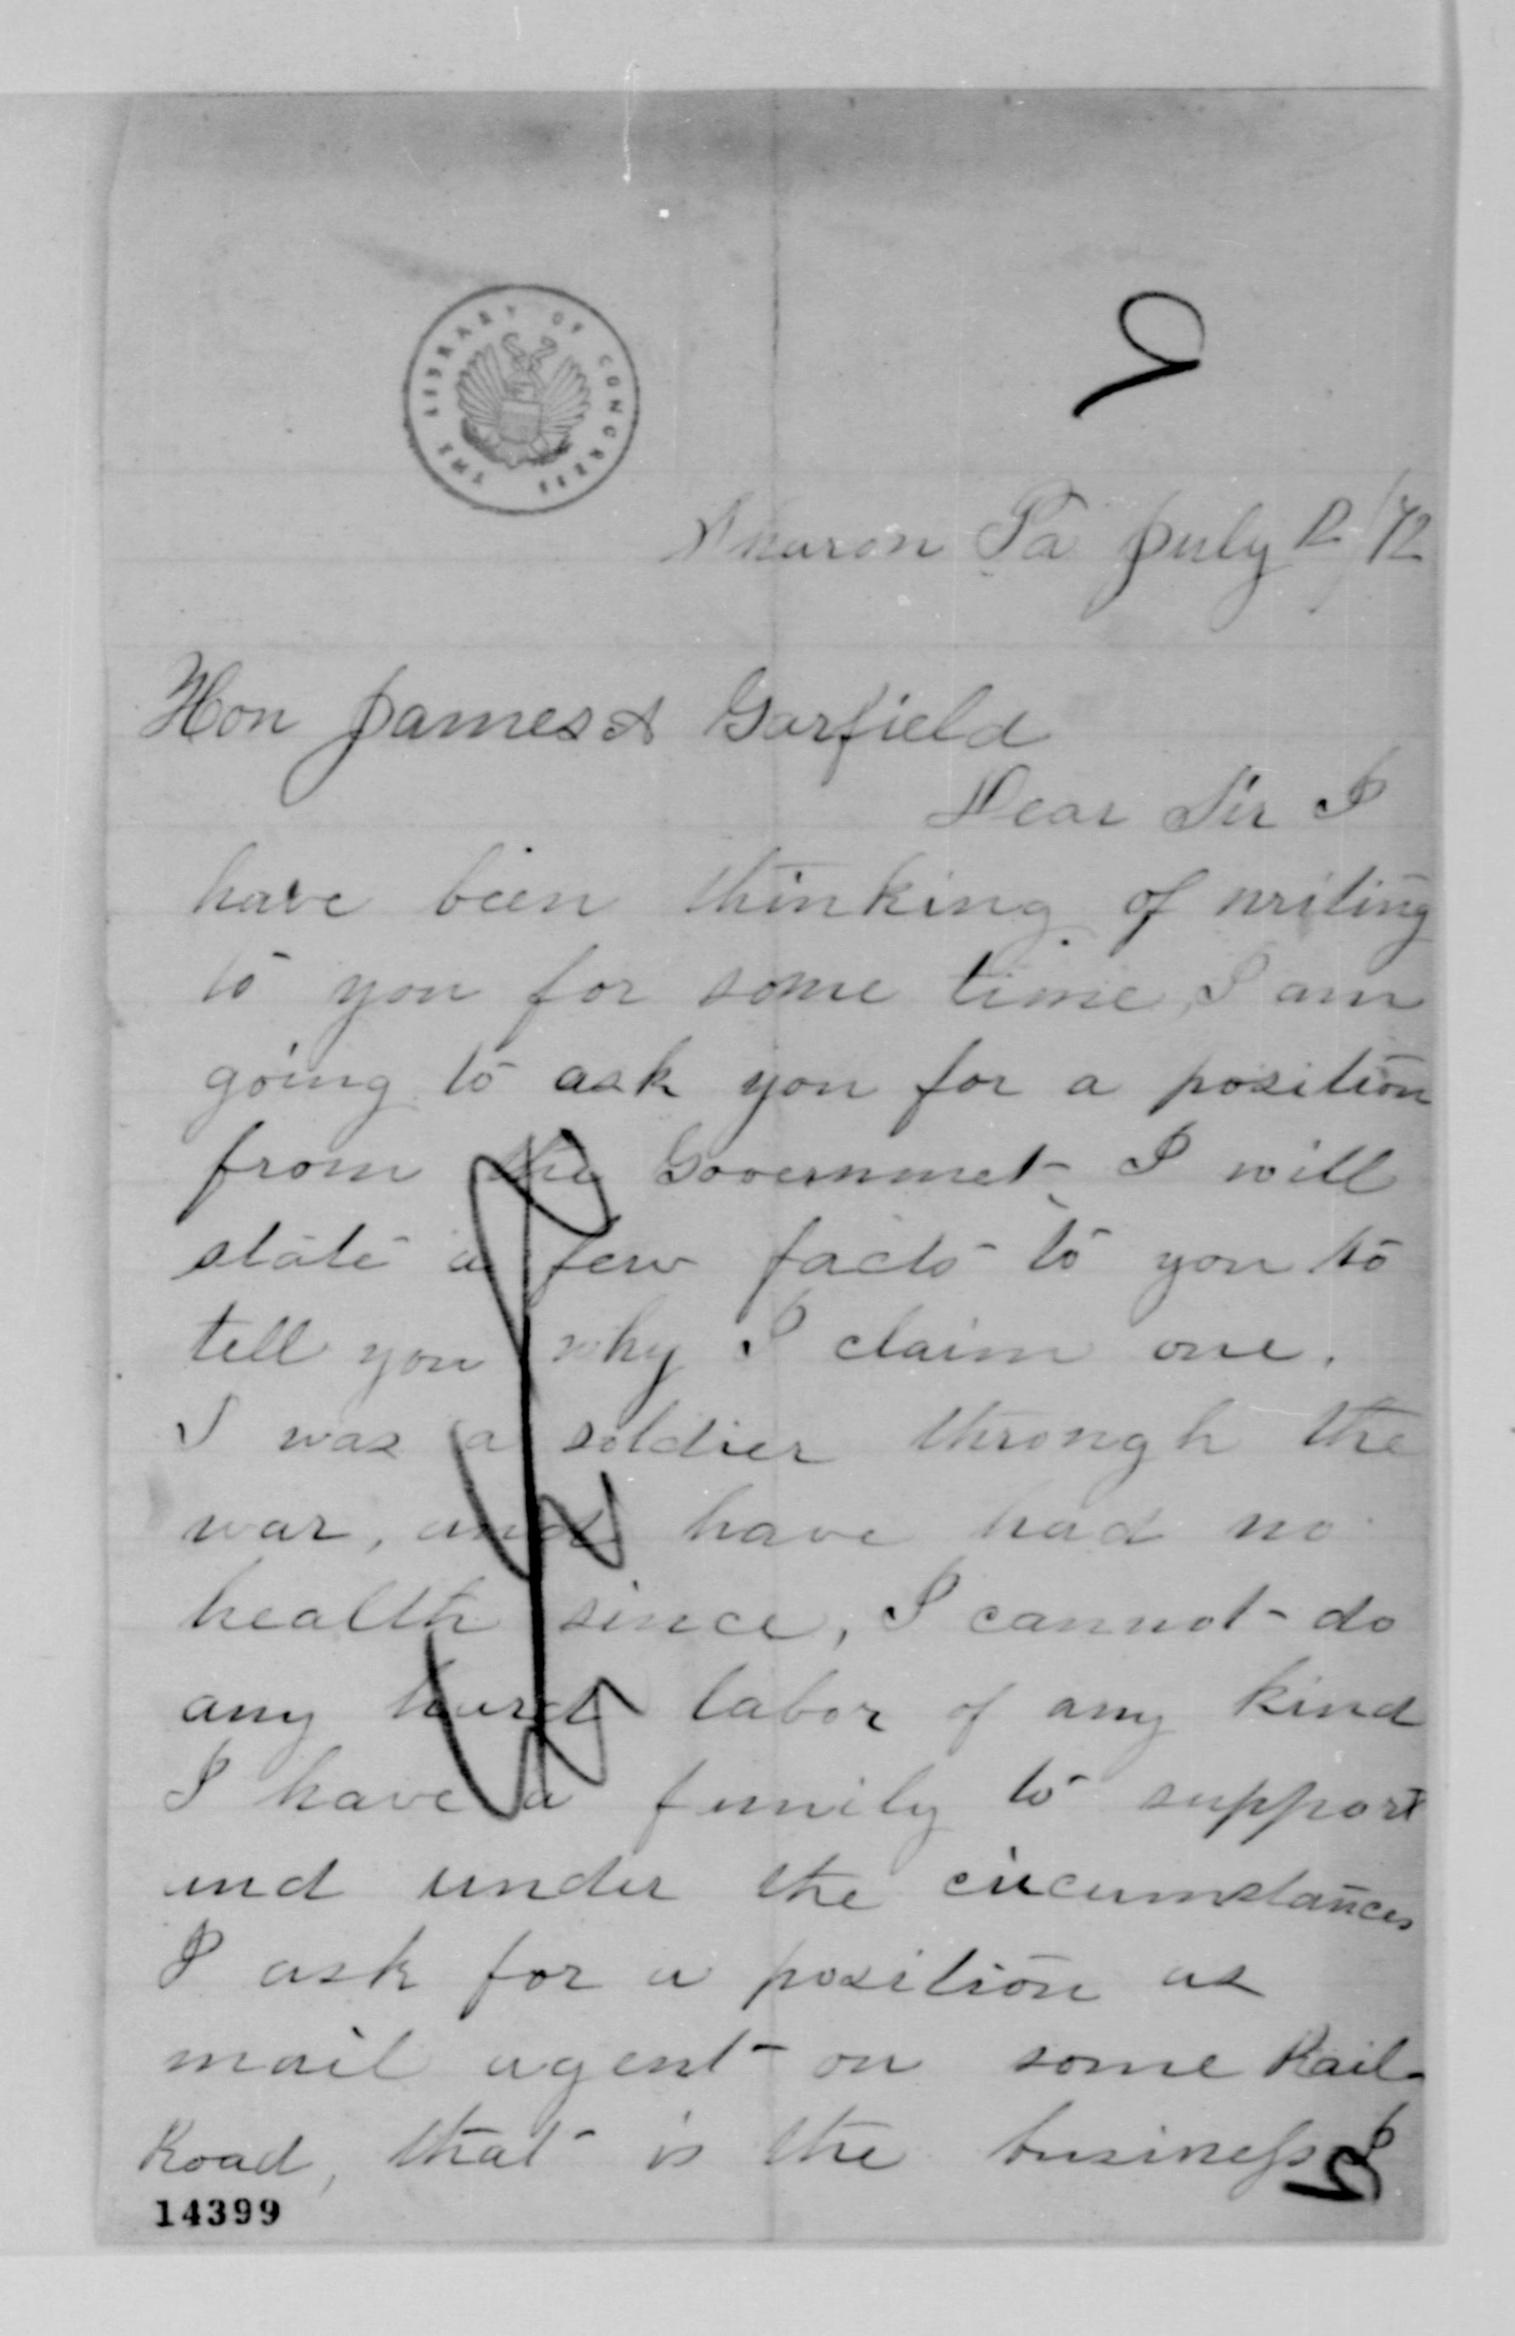 THE LIBRARY OF CONGRESS
Sharon Pa July 12/72
Hon James A Garfield
Dear Sir I
have been thinking of writing
to you for some time, I am
going to ask you for a position
from the Governmet. I will
state a few facts to you to
tell you why I claim one.
I was a soldier through the
war, and have had no
health since, I cannot do
any hard labor of any kind
I have a family to support
and under the circumstances
I ask for a position as
mail agent on some Rail-
Road, that is the business I
14399